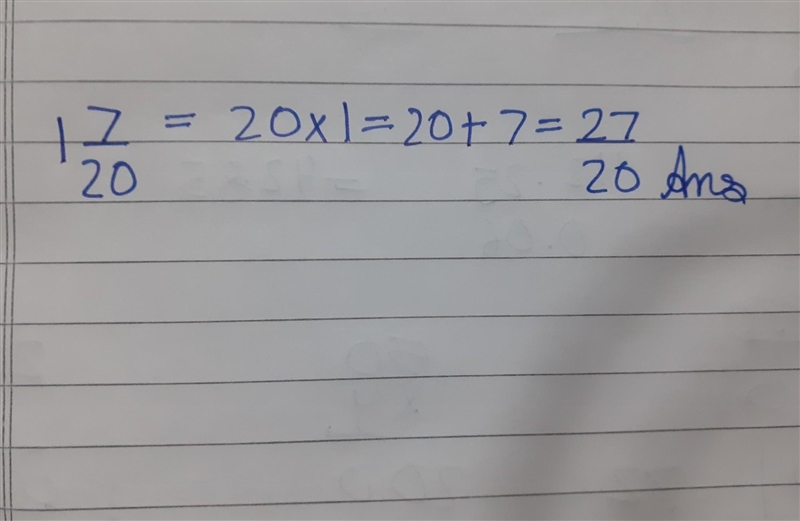 1 7/20 = 20×1=20+7=27/20 Ans